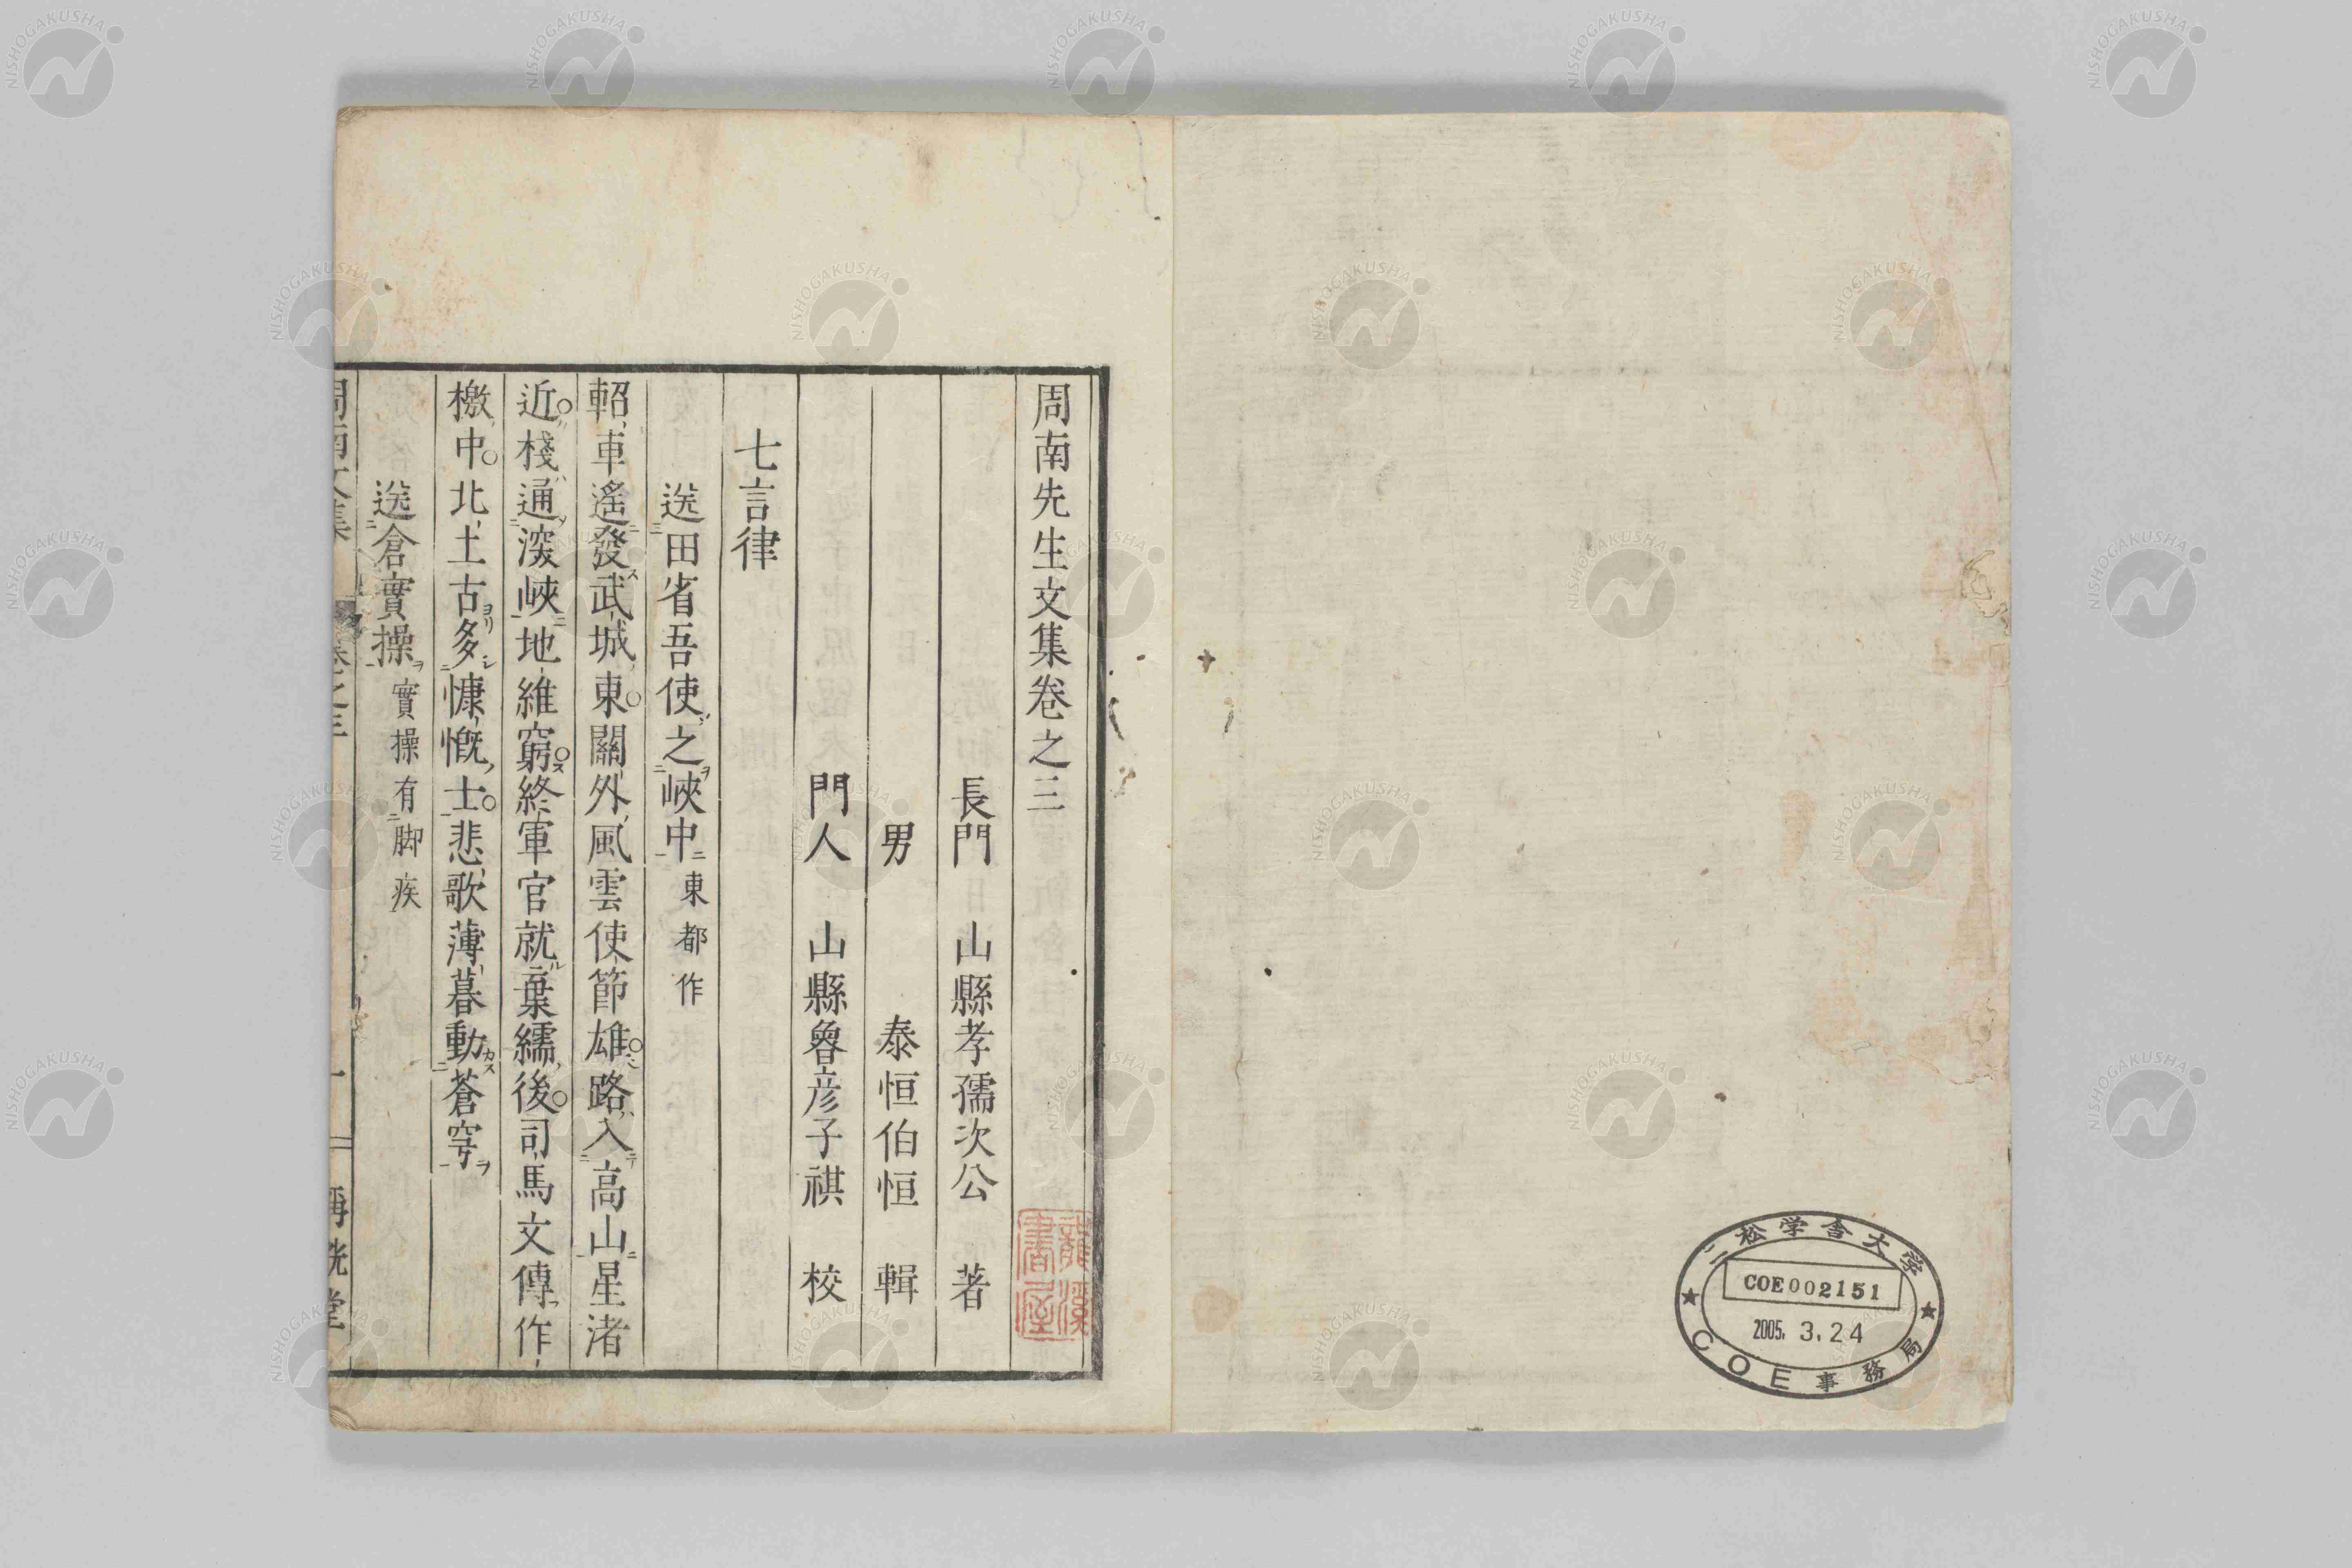 周南先生文集卷之三
長門 山縣孝孺次公 著
男 泰恒伯恒 輯
門人 山縣魯彦子祺 校
七言律
送田省吾使之峽中 東都作
軺車遙發武城東關外風雲使節雄路入高山星渚
近棧通深峽地維窮終軍官就棄繻後司馬文傳作
檄中北土古多慷慨士悲歌薄暮動蒼穹
送倉實操 實操有脚疾
周南文集 卷之三 一
龍溪書屋
二松学舎大学
COE002151
2005. 3.24
COE事務局
NISHOGAKUSHA